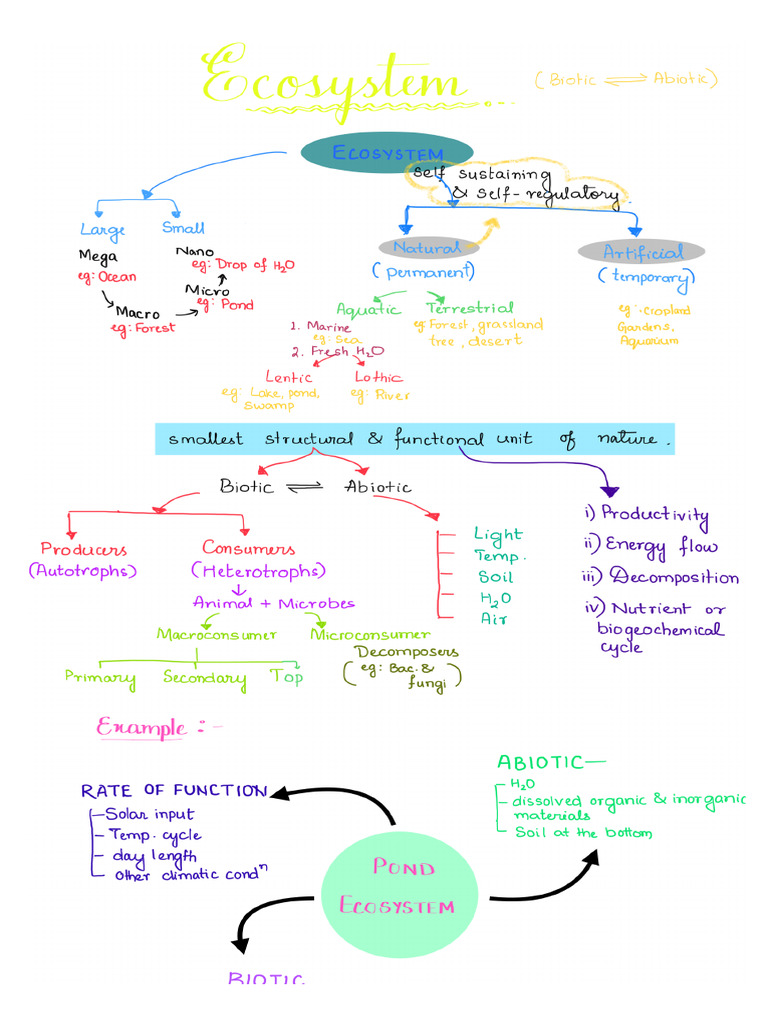 Ecosystem
(Biotic ⇌ Abiotic)
ECOSYSTEM
self sustaining
& self-regulatory.
Large
Small
Mega
eg: Ocean
Macro
eg: Forest
Nano
eg: Drop of H2O
Micro
eg: Pond
Natural
(permanent)
Artificial
(temporary)
Aquatic
Terrestrial
1. Marine
eg: Sea
2. Fresh H2O
eg: Forest, grassland
tree, desert
eg:. Cropland
Gardens,
Aquarium
Lentic
eg: Lake, pond,
swamp
Lothic
eg: River
smallest structural & functional unit of nature.
Biotic ⇌ Abiotic
Producers
(Autotrophs)
Consumers
(Heterotrophs)
Animal + Microbes
Macroconsumer
Microconsumer
Decomposers
(eg: Bac. &
fungi)
Primary
Secondary
Top
Light
Temp.
Soil
H2O
Air
i) Productivity
ii) Energy flow
iii) Decomposition
iv) Nutrient or
biogeochemical
cycle
Example :-
RATE OF FUNCTION
- Solar input
- Temp. cycle
- day length
- other climatic condⁿ
ABIOTIC—
- H2O
- dissolved organic & inorganic
materials
- Soil at the bottom
POND
ECOSYSTEM
BIOTIC